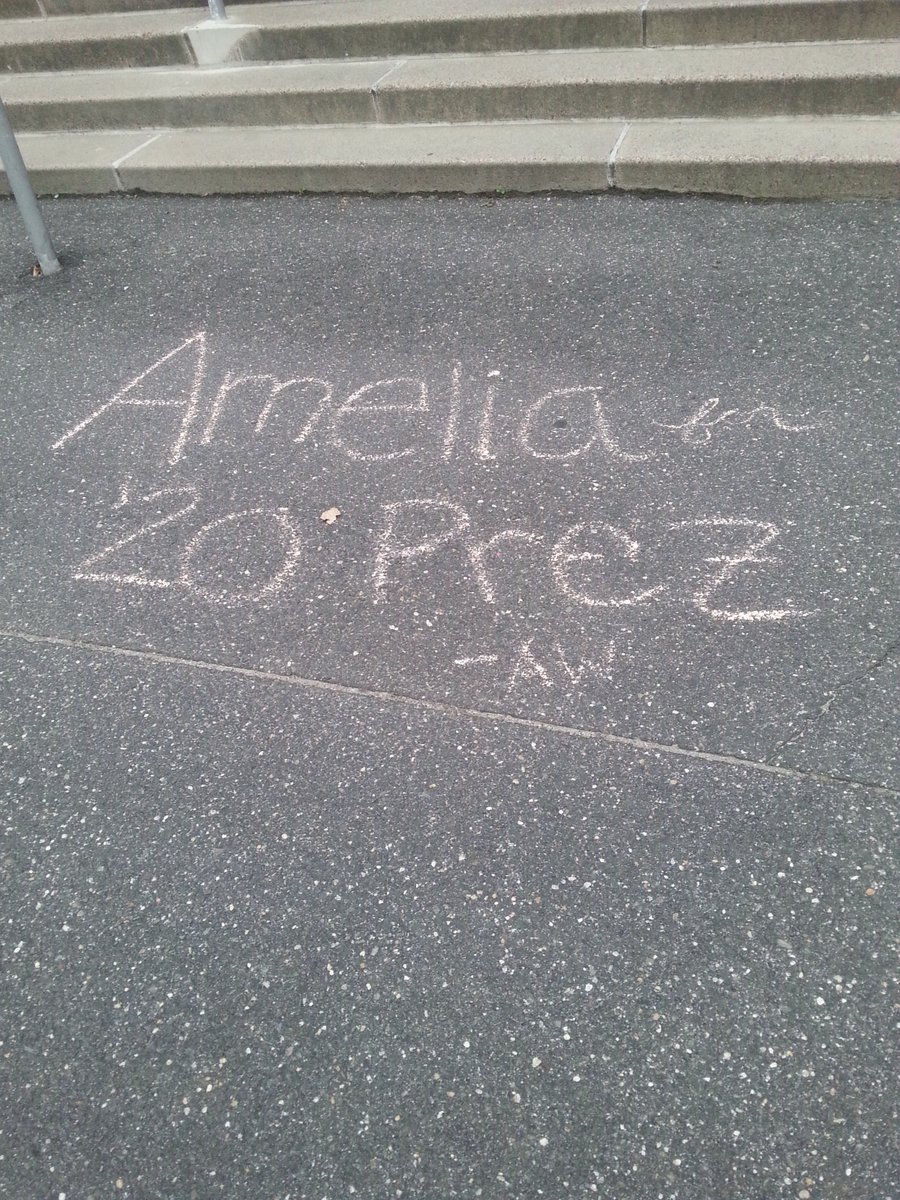 Amelia for
'20 Prez
- AW